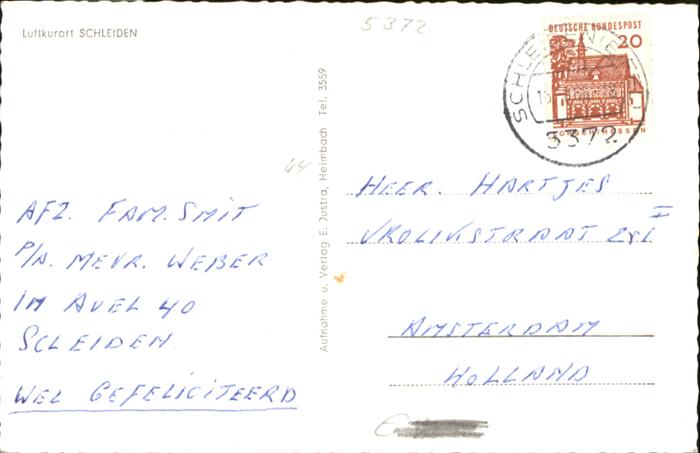 Luftkurort SCHLEIDEN
5372
DEUTSCHE BUNDESPOST
20
5372
Aufnahme u. Verlag E. Justra, Heimbach Tel. 3559
44
AFZ. FAM. SMIT
P/A. MEVR. WEBER
IM AUEL 40
SCLEIDEN
WEL GEFELICITEERD
HEER. HARTJES
VROLIKSTRAAT I
AMSTERDAM
HOLLAND